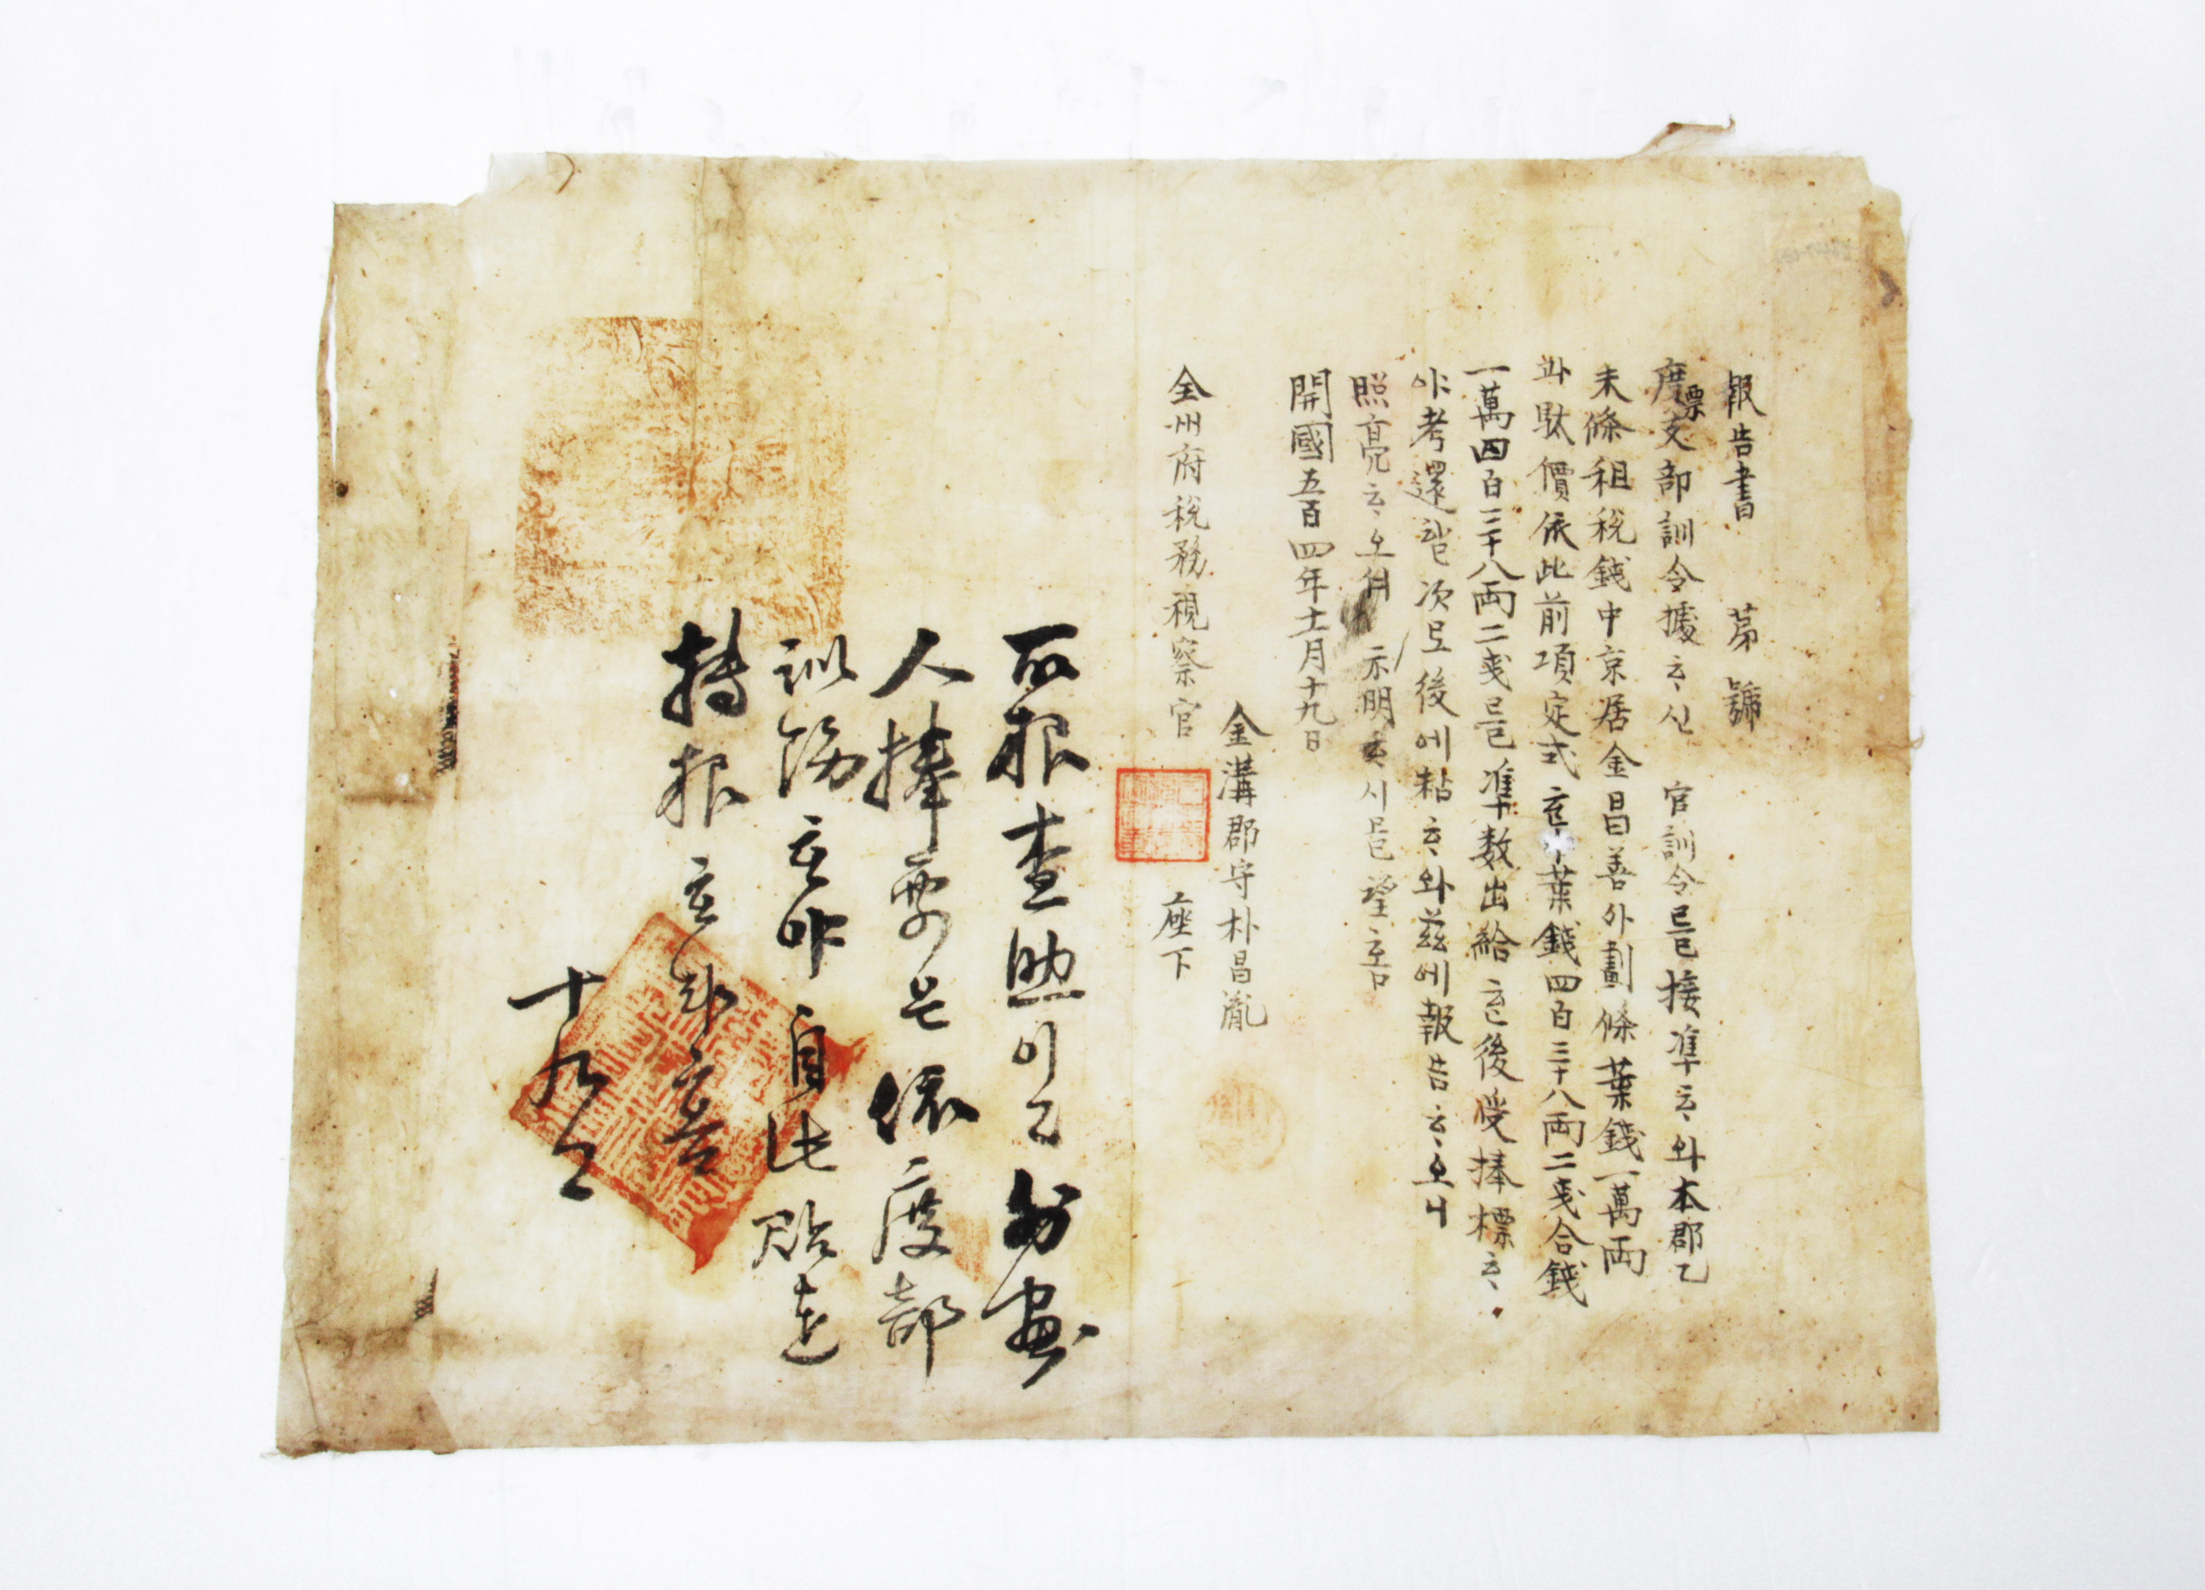 報告書 苐 號
度支部訓令據ᄒᆞ신 官訓令을 接準ᄒᆞ와 本郡乙
未條租稅錢中京居金昌善外劃條葉錢一萬兩
과 駄價依此前項定式ᄒᆞ 葉錢四百三十八兩二戔合錢
一萬四百三十八兩二戔을 準數出給ᄒᆞᆫ後受捧標ᄒᆞ
야 考還 次로 後에 粘ᄒᆞ와 玆에 報告ᄒᆞ오니
照亮ᄒᆞ오 示明ᄒᆞ시믈 望홈
開國五百四年十一月十九日
金溝郡守朴昌胤
全州府稅務視察官 座下
所報查照이고 外画
人捧票은 依度部
訓飭ᄒᆞ야 自此貼連
轉報ᄒᆞ 홈
十九日